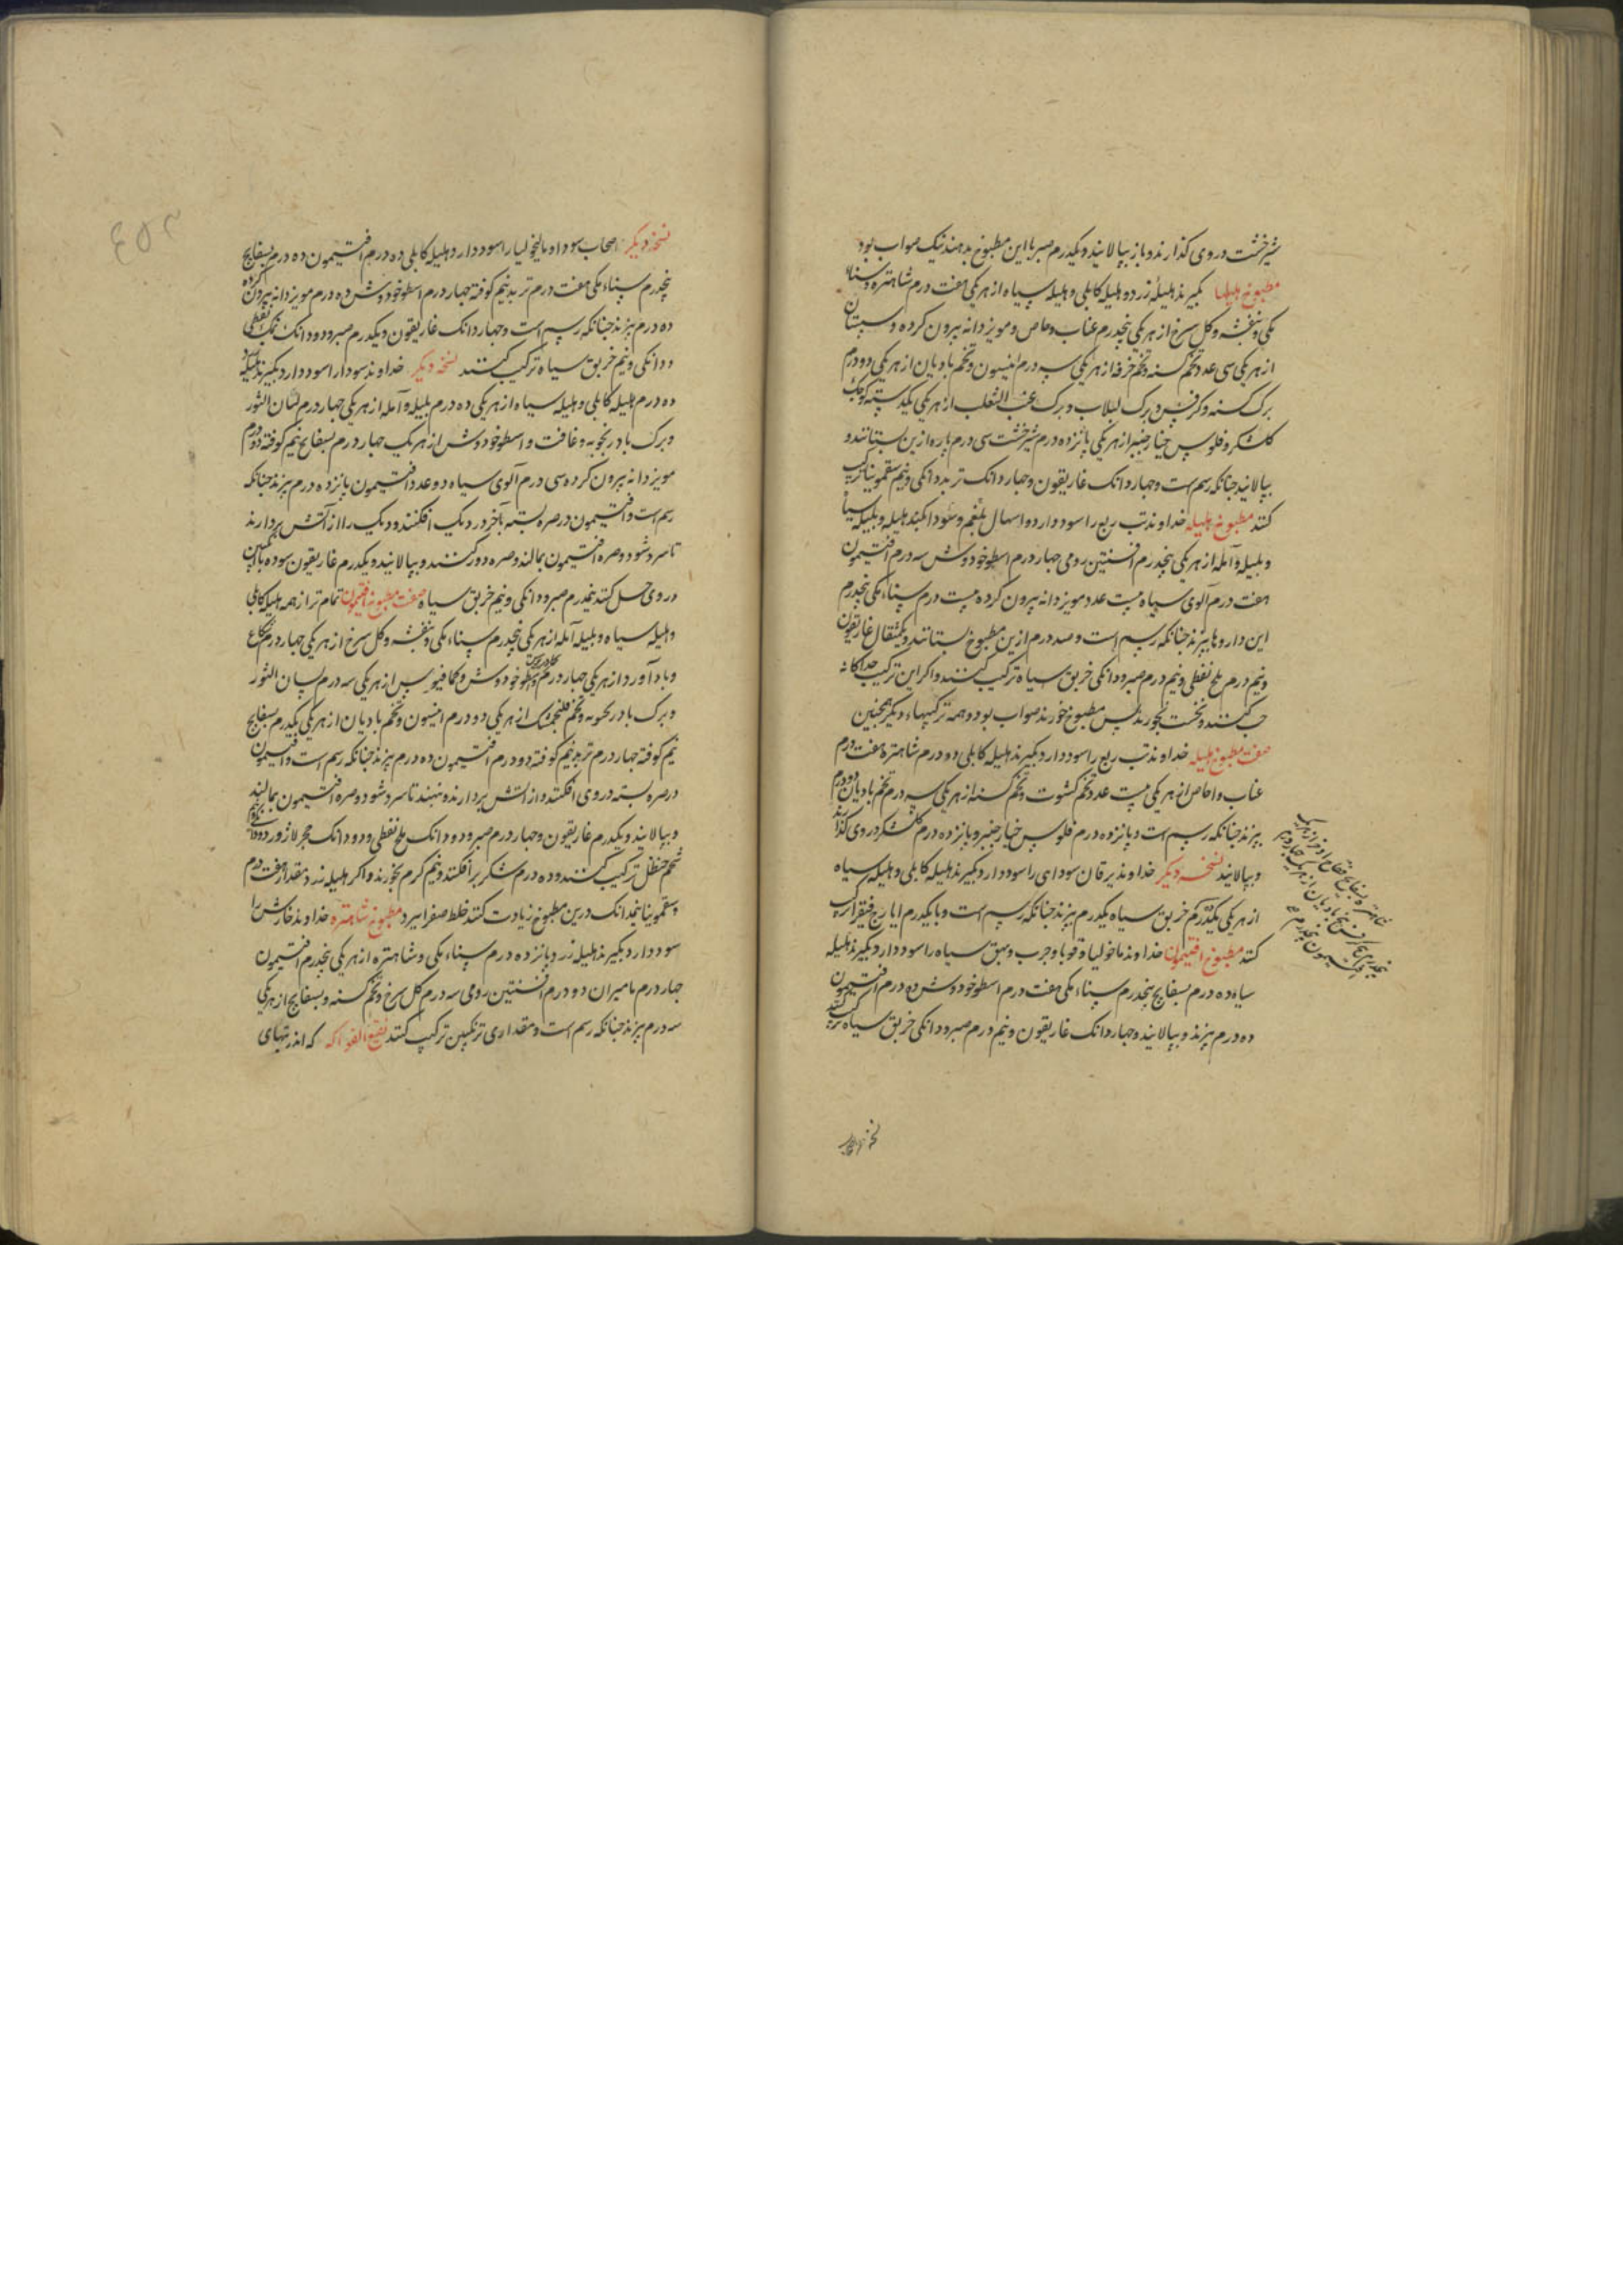 شیرخشت دروی گذارند و باز بپالایند و یکدرم صبر با این مطبوخ بدهند نیک صواب بود
مطبوخ هلیلها بگیرند هلیله زرد و هلیله کابلی و هلیله سیاه از هر یکی هفت درم شاهتره و سناء
مکی و بنفشه و کل سرخ از هر یکی پنجدرم عناب و اجاص و مویز دانه بیرون کرده و سبستان
از هر یکی سی عدد تخم کسنه و تخم خرفه از هر یکی سه درم انیسون و تخم بادیان از هر یکی دو درم
برک کسنه و کرفس و برک لبلاب و برک عنب الثعلب از هر یکی یکدسته کوچک
کلشکر و فلوس خیارچنبر از هر یکی پانزده درم شیرخشت سی درم باره ازین بستانند و
بپالایند جنانکه رسم است و جهار دانک غاریقون و جهار دانک تربد و دانکی و نیم سقمونیا ترکیب
کنند مطبوخ هلیله خداوند تب ربع را سود دارد و اسهال بلغم و سودا کند هلیله و بلیله سیاه
و بلیله و آمله از هر یکی پنجدرم افسنتین رومی جهار درم اسطوخودوش سه درم افتیمون
هفت درم آلوی سیاه بیست عدد مویز دانه بیرون کرده بیست درم سناء مکی پنجدرم
این داروها بپزند جنانکه رسم است و صد درم ازین مطبوخ بستانند و یکمثقال غاریقون
و نیم درم ملح نفطی و نیم درم صبر و دانکی خربق سیاه ترکیب کنند و اکر این ترکیب جداکانه
حب کنند و نخست بخورند پس مطبوخ خورند صواب بود و همه ترکیبهاء دیکر همچنین
صفت مطبوخ هلیله خداوند تب ربع را سود دارد بگیرند هلیله کابلی ده درم شاهتره هفت درم
عناب و اجاص از هر یکی بیست عدد تخم کشوت و تخم کسنه از هر یکی سه درم تخم بادیان دو درم
بپزند جنانکه رسم است و پانزده درم فلوس خیارچنبر و پانزده درم کلشکر دروی گذارند
و بپالایند نسخه دیکر خداوند یرقان سودای را سود دارد بگیرند هلیله کابلی و هلیله سیاه
از هر یکی یکدرم خربق سیاه یکدرم بپزند جنانکه رسم است و با یکدرم ایارج فیقرا ترکیب
کنند مطبوخ افتیمون خداوند ماخولیا و قوبا و جرب و بهق سیاه را سود دارد بگیرند هلیله
سیاه ده درم بسفایج پنجدرم سناء مکی هفت درم اسطوخودوش ده درم افتیمون
ده درم بپزند و بپالایند و جهار دانک غاریقون و نیم درم صبر و دانکی خربق سیاه ترکیب کنند
نسخه دیکر اصحاب سودا و مالیخولیا را سود دارد هلیله کابلی ده درم افتیمون ده درم بسفایج
پنجدرم سناء مکی هفت درم تربد نیم کوفته جهار درم اسطوخودوش ده درم مویز دانه بیرون کرده
ده درم بپزند جنانکه رسم است و جهار دانک غاریقون و یکدرم صبر و دو دانک نمک نفطی
و دانکی و نیم خربق سیاه ترکیب کنند نسخه دیکر خداوند سودا را سود دارد بگیرند هلیله سیاه
ده درم هلیله کابلی و هلیله سیاه از هر یکی ده درم بلیله و آمله از هر یکی جهار درم لسان الثور
و برک بادرنجویه و غافت و اسطوخودوش از هر یک جهار درم بسفایج نیم کوفته ده درم
مویز دانه بیرون کرده سی درم آلوی سیاه دو عدد افتیمون پانزده درم بپزند جنانکه
رسم است و افتیمون در صره بسته بآخر در دیک افکنند و دیک را از آتش بردارند
تا سرد شود و صره افتیمون بمالند و صره دور کنند و بپالایند و یکدرم غاریقون سوده
دروی حل کنند نیمدرم صبر و دانکی و نیم خربق سیاه صفت مطبوخ افتیمون تمام تر از همه هلیله کابلی
و هلیله سیاه و بلیله آمله از هر یکی پنجدرم سناء مکی و بنفشه و کل سرخ از هر یکی جهار درم شکاع
و بادآورد از هر یکی جهار درم اسطوخودوش و کمافیوس از هر یکی سه درم لسان الثور
و برک بادرنجویه و تخم فلنجمشک از هر یکی دو درم انیسون و تخم بادیان از هر یکی یکدرم بسفایج
نیم کوفته جهار درم تربد نیم کوفته دو درم افتیمون ده درم بپزند جنانکه رسم است و افتیمون
در صره بسته دروی افکنند و از آتش بردارند و بنهند تا سرد شود و صره افتیمون بمالند
و بپالایند و یکدرم غاریقون و جهار درم صبر و دو دانک ملح نفطی و دو دانک حجر لاژورد و دانکی
شحم حنظل ترکیب کنند و ده درم شکر برافکنند و نیم کرم بخورند و اکر هلیله زرد مقدار هفت درم
و سقمونیا نیمدانک درین مطبوخ زیادت کنند خلط صفرا ببرد مطبوخ شاهتره خداوند خارش را
سود دارد بگیرند هلیله زرد پانزده درم سناء مکی و شاهتره از هر یکی پنجدرم افتیمون
جهار درم مامیران دو درم افسنتین رومی سه درم کل سرخ و تخم کسنه و بسفایج از هر یکی
سه درم بپزند جنانکه رسم است و مقداری ترنکبین ترکیب کنند نقیع الفواکه که اندر تبهای